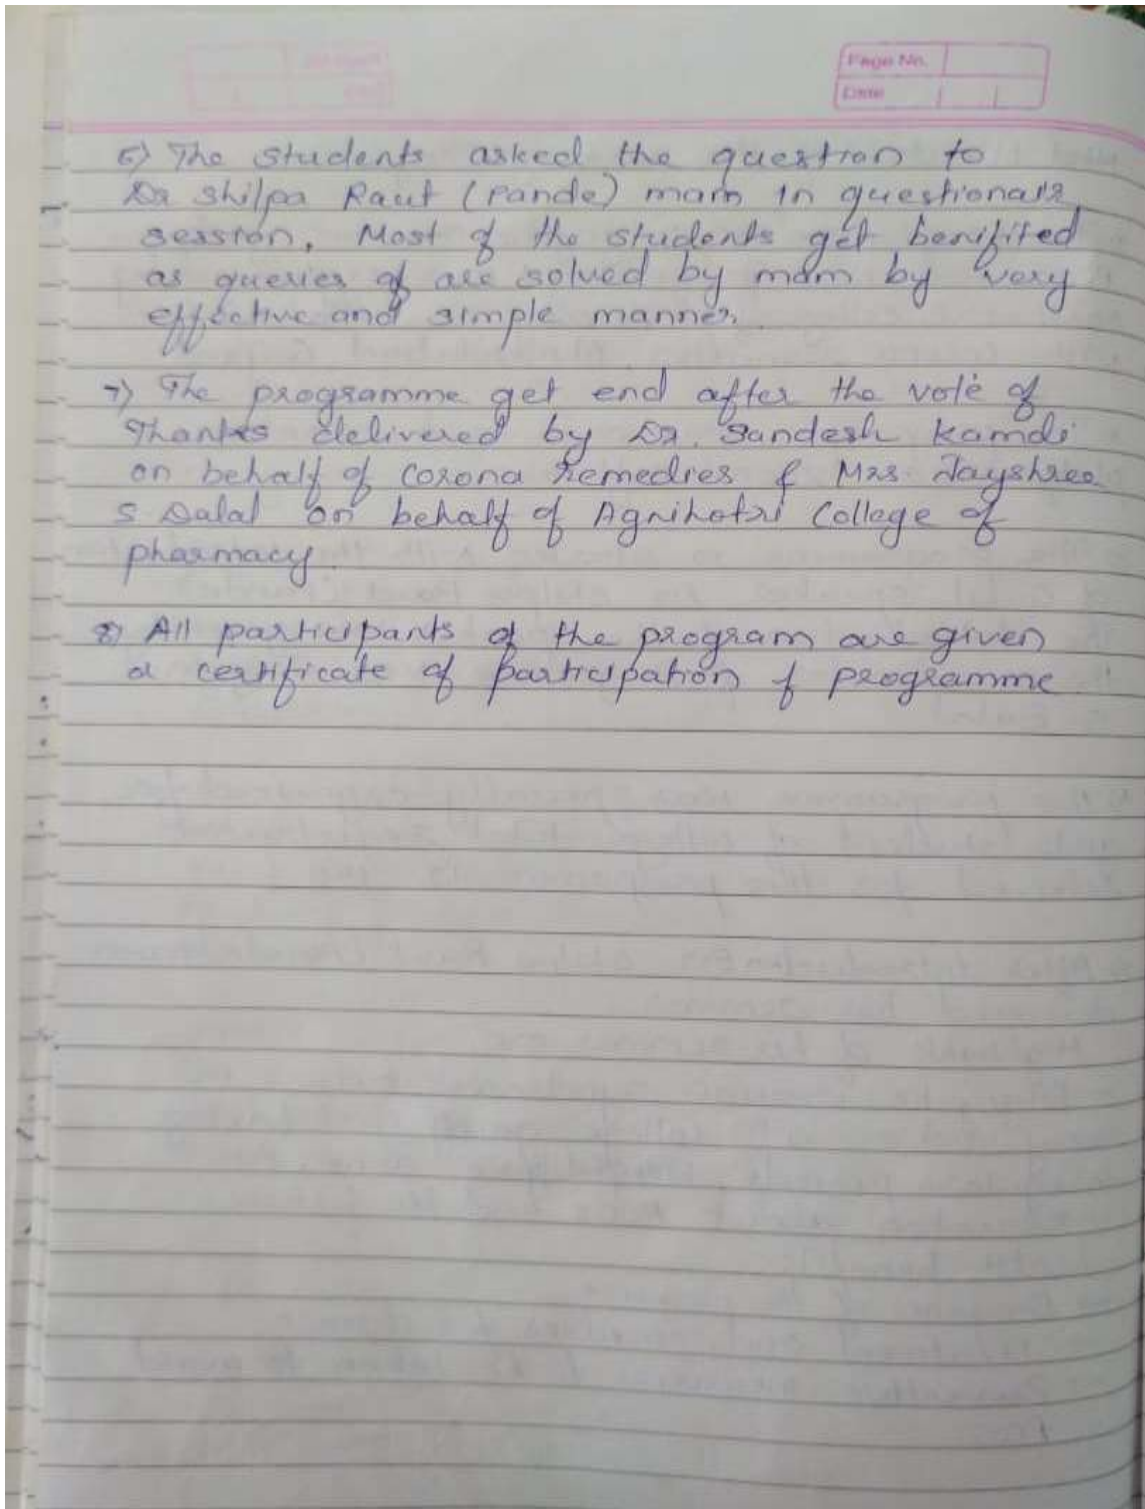 Page No.
Date
6) The students asked the question to
Dr Shilpa Raut (Pande) mam in questionair
session, Most of the students get benifited
as queries of are solved by mam by very
effective and simple manner.
7) The programme get end after the vote of
Thanks delivered by Dr. Sandesh Kamdi
on behalf of Corona Remedies & Mrs. Jayshree
S Dalal on behalf of Agnihotri College of
pharmacy.
8) All participants of the program are given
a certificate of participation of programme